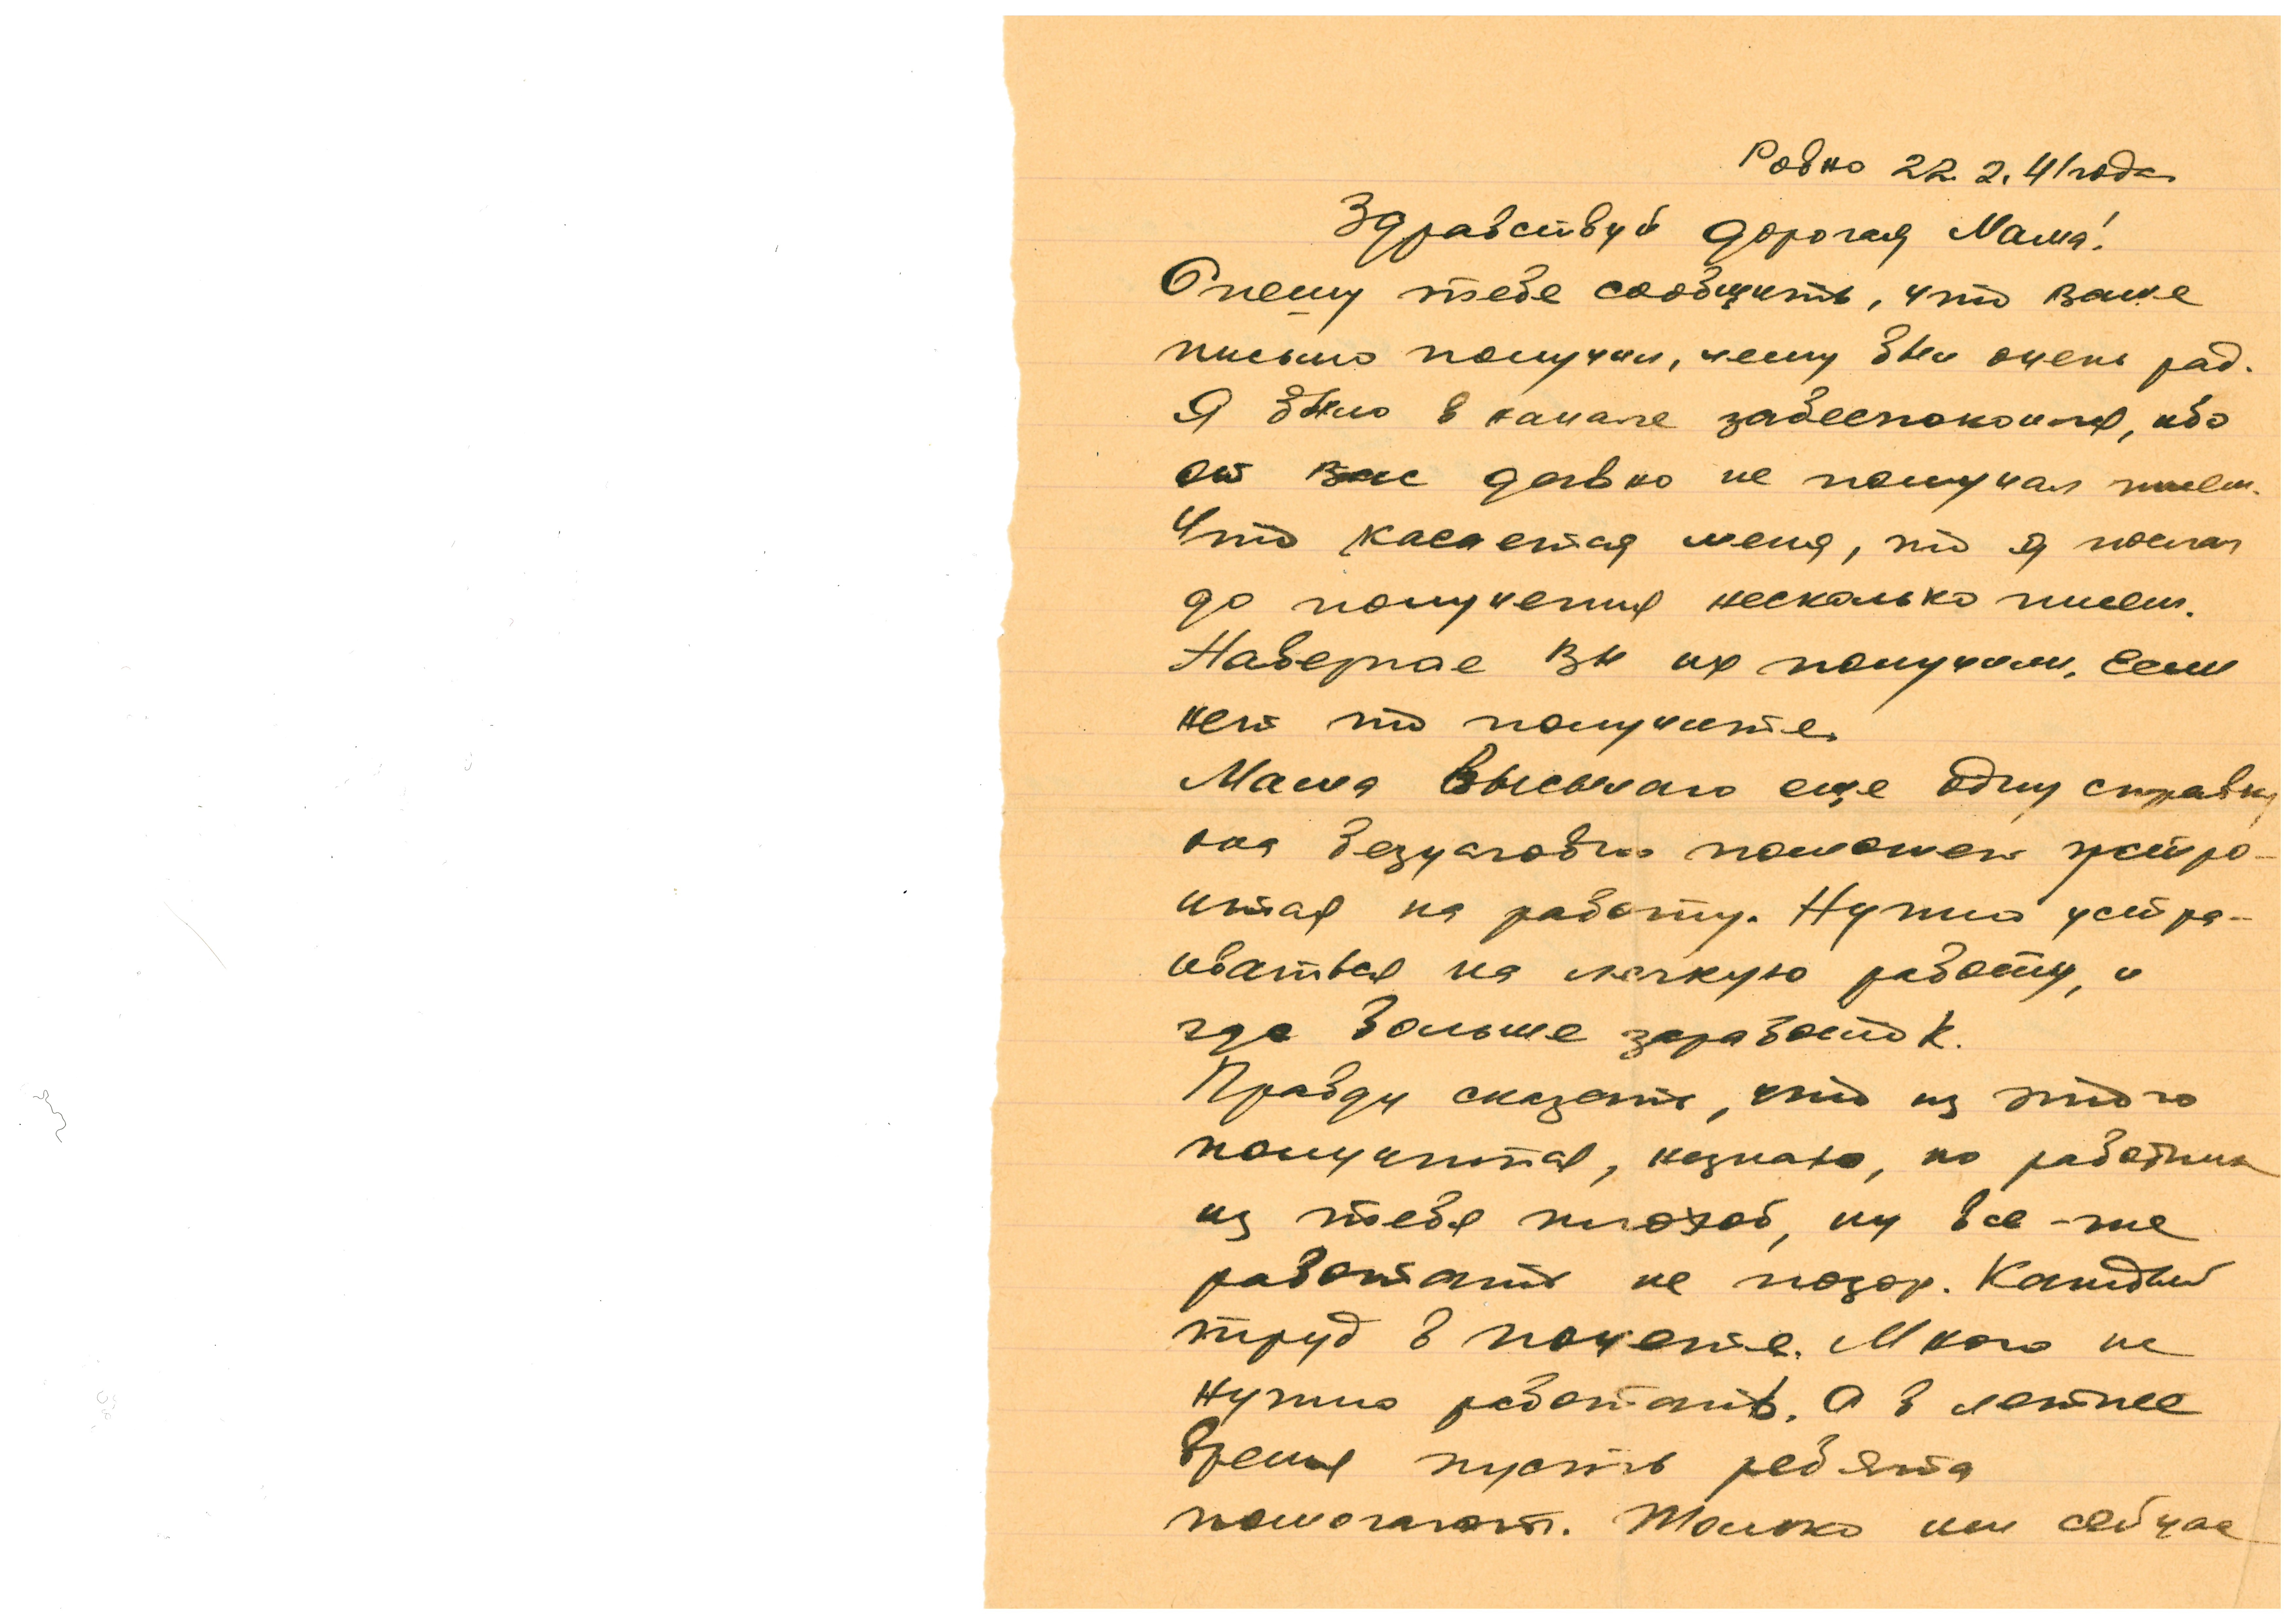 Ровно 22.2.41 года
Здравствуй дорогая Мама!
Спешу тебе сообщить, что ваше
письмо получил, чему был очень рад.
Я было в начале забеспокоился, ибо
от вас давно не получал писем.
Что касается меня, то я послал
до получения несколько писем.
Наверное вы их получили. Если
нет то получите.
Мама высылаю еще одну справку
она безусловно поможет устро-
иться на работу. Нужно устра-
иваться на легкую работу, и
где больше заработок.
Правду сказать, что из этого
получится, незнаю, но работник
из тебя плохой, ну все-же
работать не позор. Каждый
труд в почете. Много не
нужно работать. А в летнее
время пусть ребята
помогают. Только им сейчас